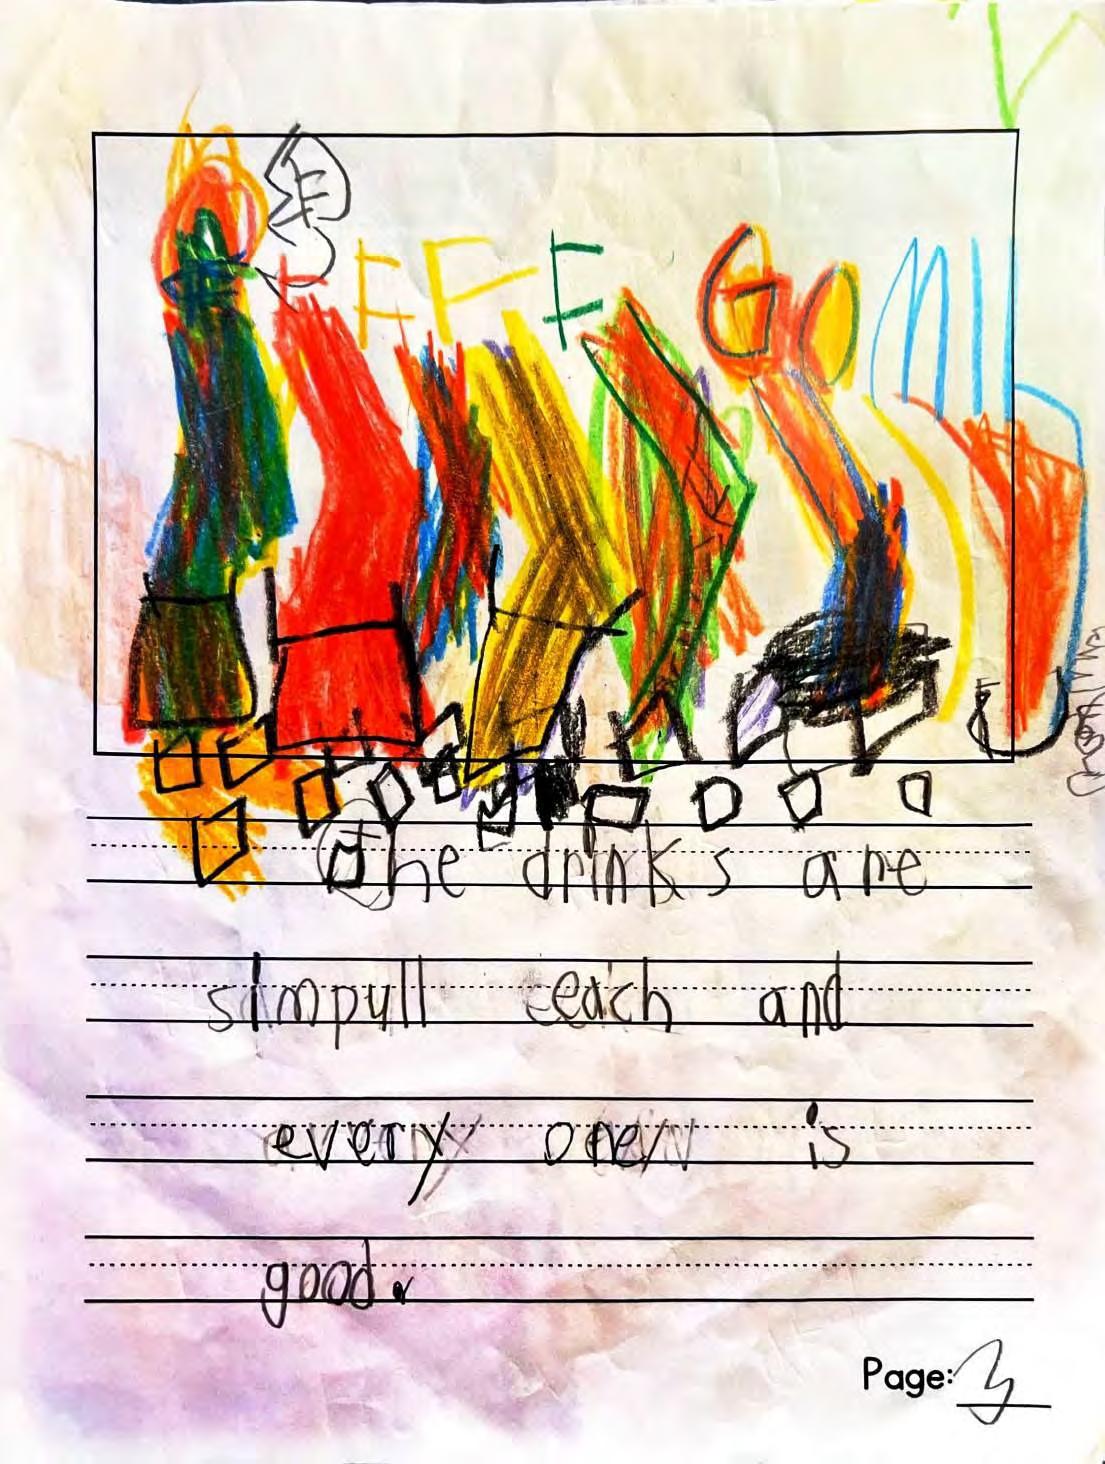 FFF GO
The drinks are
simpull each and
every one is
good.
Page: 3